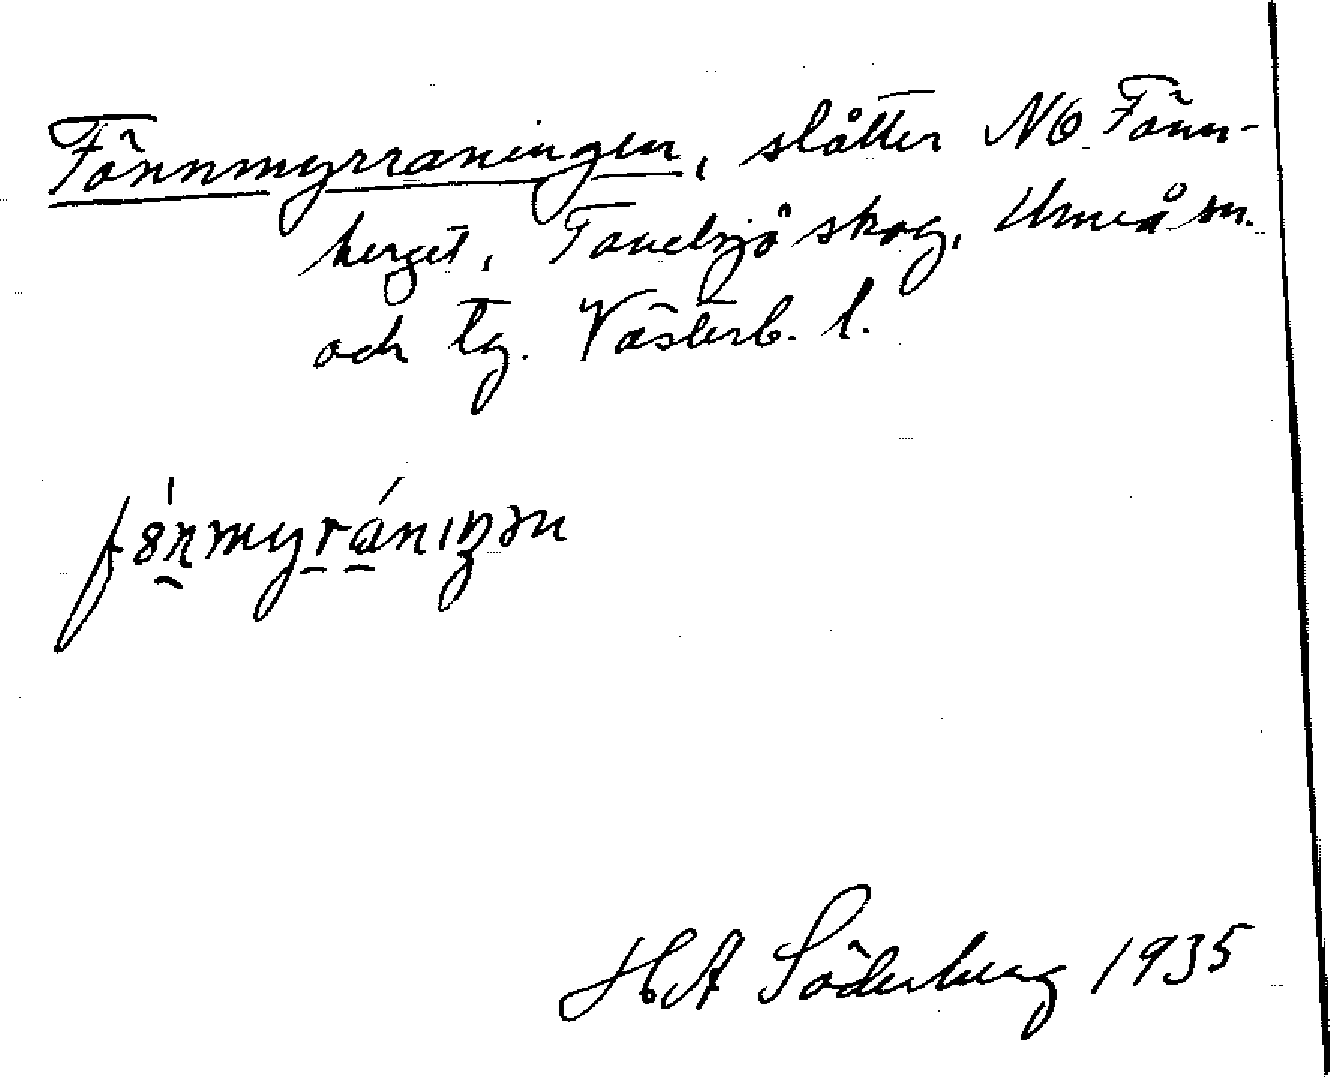 Fönnmyrraningen, slåtter NO Fönn-
berget, Tavelsjö skog, Umeå sn.
och tg. Västerb. l.
H A Söderberg 1935